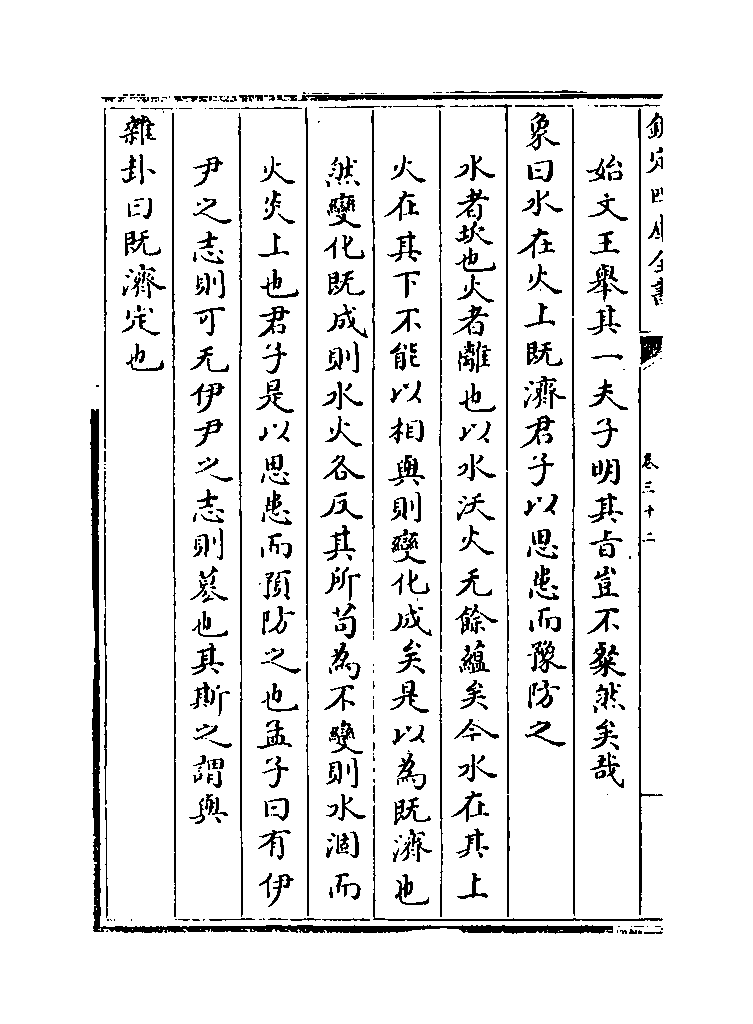 欽定四庫全書
卷三十二
始文王舉其一夫子明其旨豈不粲然矣哉
象曰水在火上既濟君子以思患而豫防之
水者坎也火者離也以水沃火无餘蘊矣今水在其上
火在其下不能以相與則變化成矣是以為既濟也
然變化既成則水火各反其所苟為不變則水涸而
火炎上也君子是以思患而預防之也孟子曰有伊
尹之志則可无伊尹之志則簒也其斯之謂與
雜卦曰既濟定也